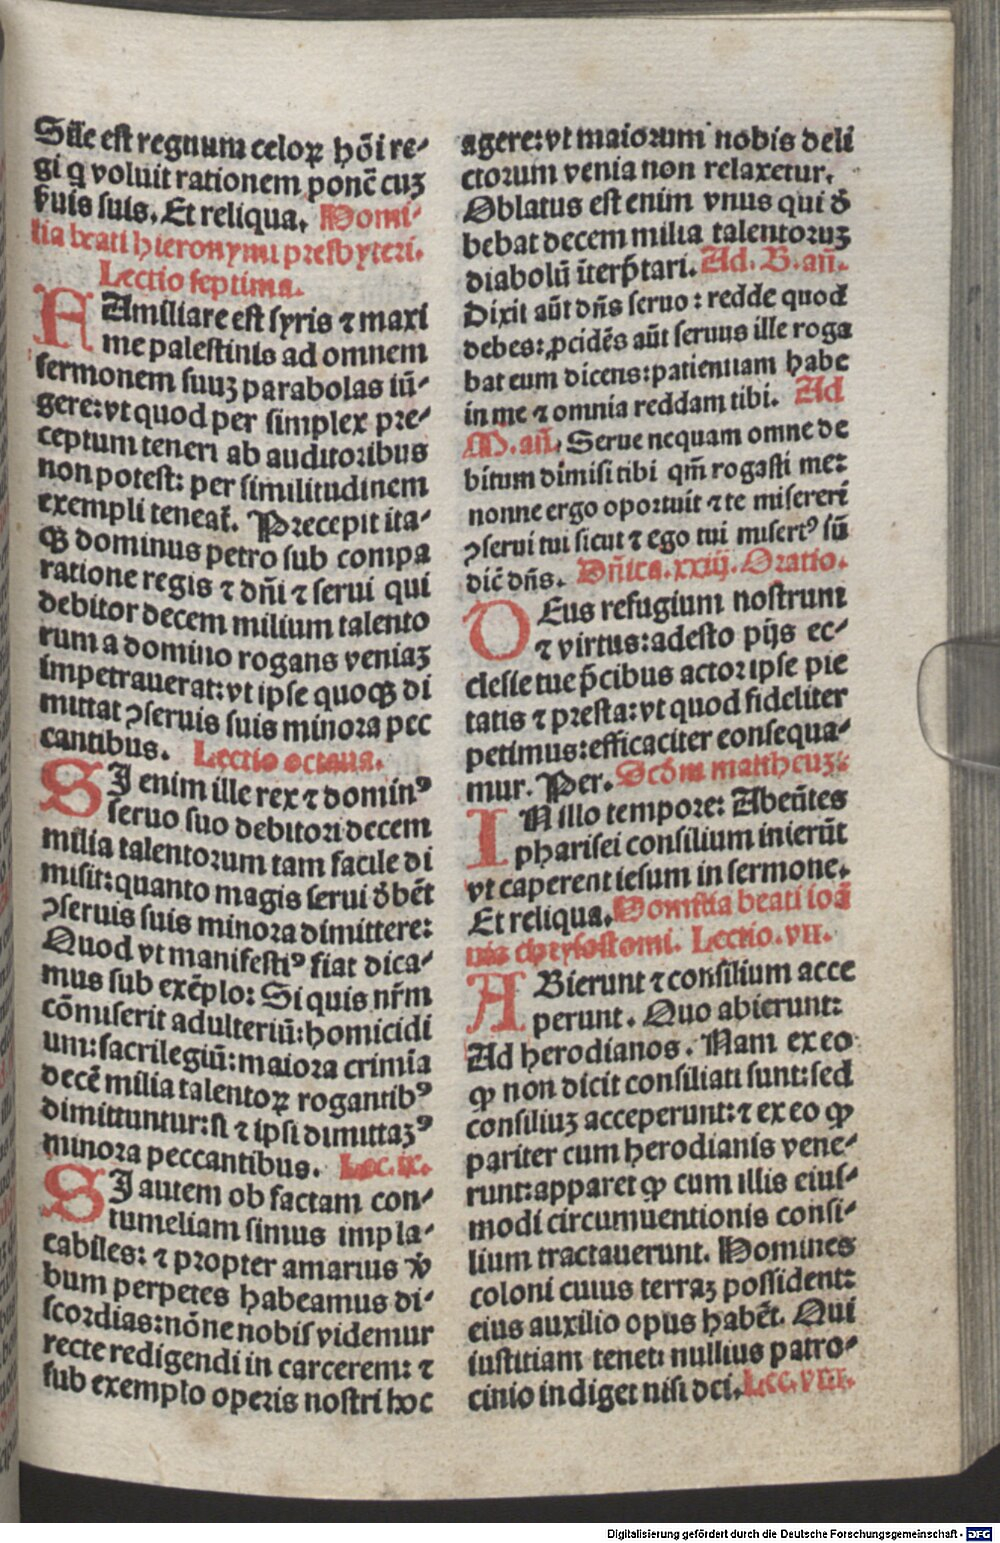 Sil̃e est regnum celoꝝ hõi re⸗
gi q̇ voluit rationem ponẽ cuꝫ
ẜuis suis. Et reliqua. Homi⸗
lia beati hieronymi presbyteri.
Lectio septima.
FAmiliare est syris ⁊ maxi
me palestinis ad omnem
sermonem suuꝫ parabolas iũ⸗
gere: vt quod per simplex pre⸗
ceptum teneri ab auditoribus
non potest: per similitudinem
exempli teneat̃. Precepit ita⸗
qꝫ dominus petro sub compa
ratione regis ⁊ dñi ⁊ serui qui
debitor decem milium talento
rum a domino rogans veniaꝫ
impetrauerat: vt ipse quoqꝫ di
mittat ꝯseruis suis minora pec
cantibus. Lectio octaua.
SI enim ille rex ⁊ dominꝰ
seruo suo debitori decem
milia talentorum tam facile di
misit: quanto magis serui ꝺ̃bẽt
ꝯseruis suis minora dimittere:
Quod vt manifestiꝰ fiat dica⸗
mus sub exẽplo: Si quis nr̃m
cõmiserit adulteriũ: homicidi
um: sacrilegiũ: maiora crimĩa
decẽ milia talentoꝝ rogantibꝰ
dimittuntur: si ⁊ ipsi dimittaꝫꝰ
minora peccantibus. Lec. ix.
SI autem ob factam con⸗
tumeliam simus impla⸗
cabiles: ⁊ propter amarius v̾
bum perpetes habeamus di⸗
scordias: nõne nobis videmur
recte redigendi in carcerem: ⁊
sub exemplo operis nostri hoc
agere: vt maiorum nobis deli
ctorum venia non relaxetur.
Oblatus est enim vnus qui ꝺ̃
bebat decem milia talentoruꝫ
diabolũ ĩterp̃tari. Ad. B. añ.
Dixit aũt dñs seruo: redde quod
debes: ꝓcidẽs aũt seruus ille roga
bat eum dicens: patientiam habe
in me ⁊ omnia reddam tibi. Ad
M. añ. Serue nequam omne de
bitum dimisi tibi qm̃ rogasti me:
nonne ergo oportuit ⁊ te misereri
ꝯserui tui sicut ⁊ ego tui misertꝰ sũ
dic̃ dñs. Dñica. xxiij. Oratio.
DEus refugium nostrum
⁊ virtus: adesto pijs ec⸗
clesie tue p̃cibus actor ipse pie
tatis ⁊ presta: vt quod fideliter
petimus: efficaciter consequa⸗
mur. Per. Scd̃m mattheuꝫ:
IN illo tempore: Abeũtes
pharisei consilium inierũt
vt caperent iesum in sermone.
Et reliqua. Homilia beati ioã
nis chrysostomi. Lectio. vii.
ABierunt ⁊ consilium acce
perunt. Quo abierunt:
Ad herodianos. Nam ex eo
ꝙ non dicit consiliati sunt: sed
consiliuꝫ acceperunt: ⁊ ex eo ꝙ
pariter cum herodianis vene⸗
runt: apparet ꝙ cum illis eius⸗
modi circumuentionis consi⸗
lium tractauerunt. Homines
coloni cuius terraꝫ possident:
eius auxilio opus habẽt. Qui
iustitiam tenet: nullius patro⸗
cinio indiget nisi dei. Lec. viii.
Digitalisierung gefördert durch die Deutsche Forschungsgemeinschaft - DFG